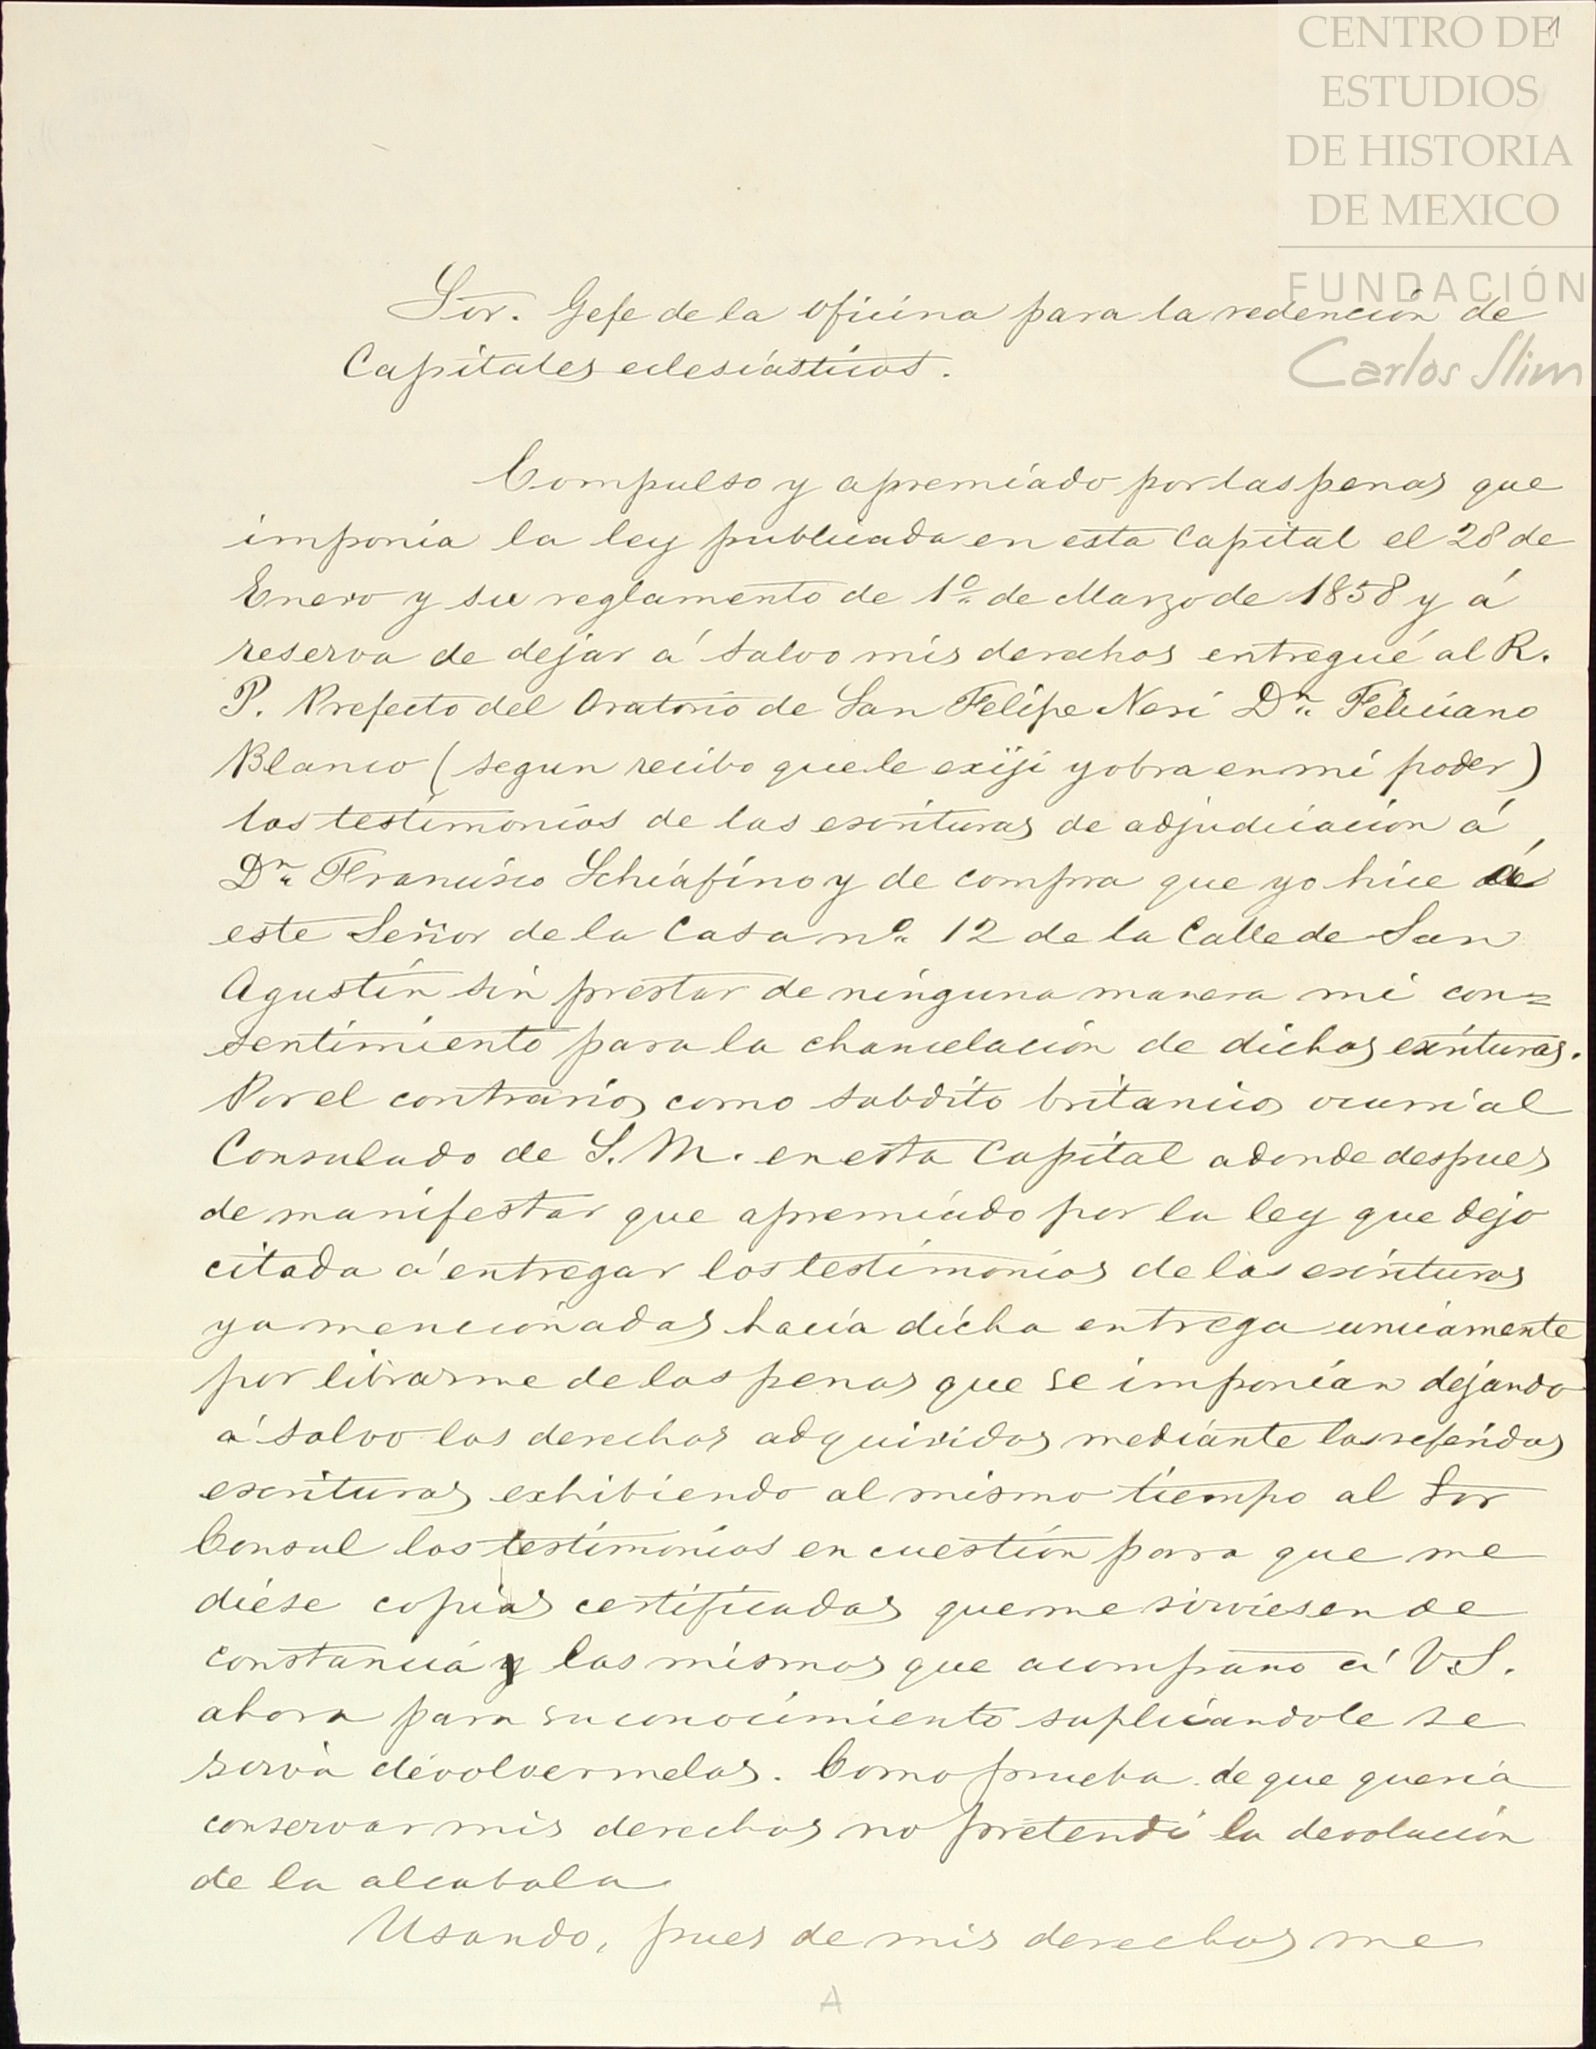 CENTRO DE
ESTUDIOS
DE HISTORIA
DE MEXICO
FUNDACIÓN
Carlos Slim
1
Sor. Gefe de la oficina para la redencion de
Capitales eclesiásticos.
Compulso y apremiado por las penas que
imponia la ley publicada en esta Capital el 28 de
Enero y su reglamento de 1º de Marzo de 1858 y á
reserva de dejar á salvo mis derechos entregué al R.
P. Prefecto del Oratorio de San Felipe Neri Dn. Feliciano
Blanco (segun recibo que le exiji y obra en mi poder)
los testimonios de las escrituras de adjudicacion á
Dn. Francisco Schiáfino y de compra que yo hice á
este Señor de la Casa nº 12 de la Calle de San
Agustin sin prestar de ninguna manera mi con=
sentimiento para la chancelacion de dichas escrituras.
Por el contrario, como subdito britanico ocurri al
Consulado de S. M. en esta Capital adonde despues
de manifestar que apremiado por la ley que dejo
citada á entregar los testimonios de las escrituras
ya mencionadas hacia dicha entrega unicamente
por librarme de las penas que se imponian dejando
á salvo los derechos adquiridos mediante las referidas
escrituras exhibiendo al mismo tiempo al Sor
Consul los testimonios en cuestion para que me
diése copias certificadas que me sirviesen de
constancia y las mismas que acompaño á V.S.
ahora para su conocimiento suplicandole se
serva devolvermelas. Como prueba de que queria
conservar mis derechos no pretendi la devolucion
de la alcabala
Usando, pues de mis derechos me
A